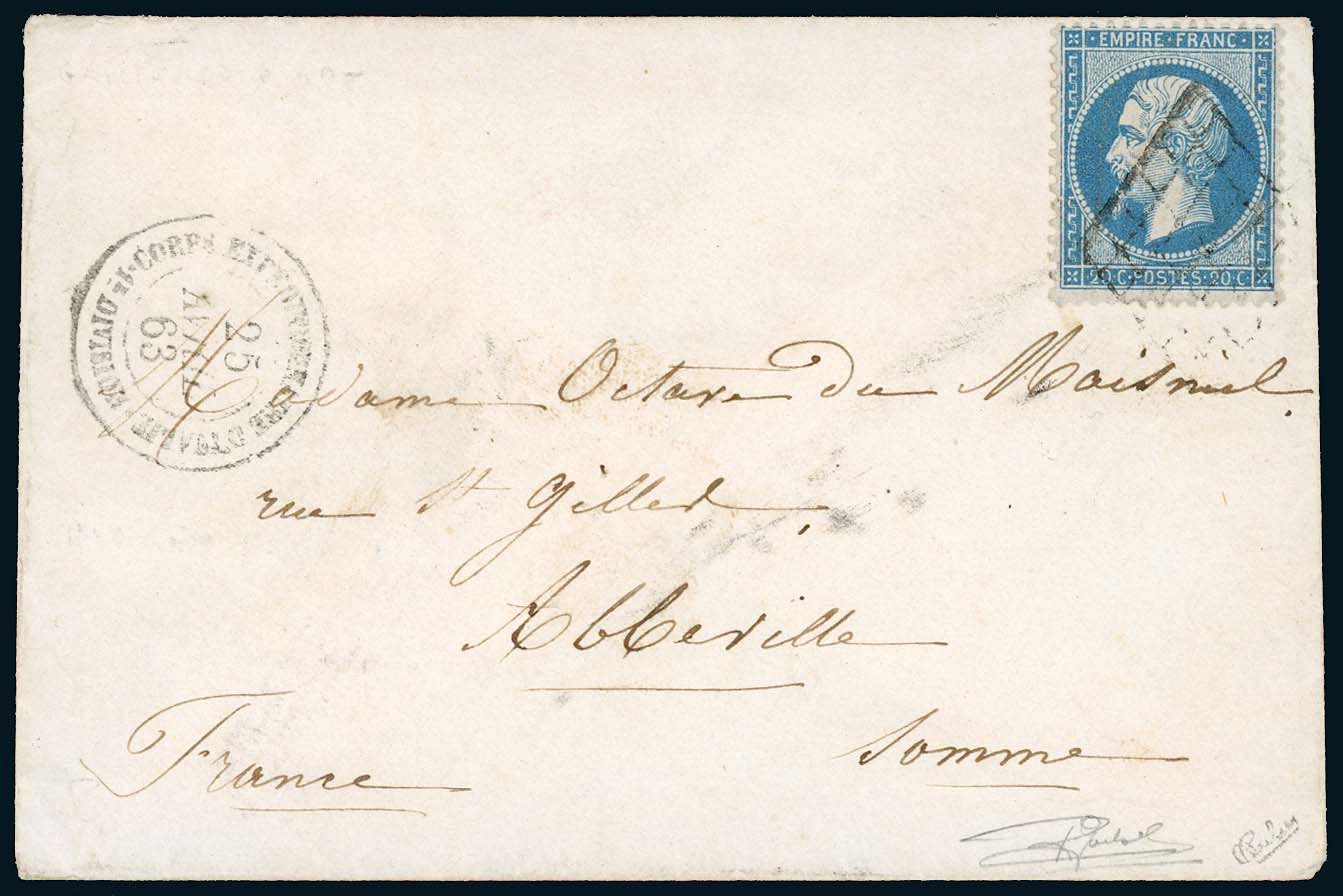 · EMPIRE · FRANC ·
20 C · POSTES · 20 C
CORPS EXPEDITIONNAIRE D'ITALIE
25
AVRIL
63
Madame Octave Du Maisniel.
rue St Gilles.
Abbeville
Somme
France